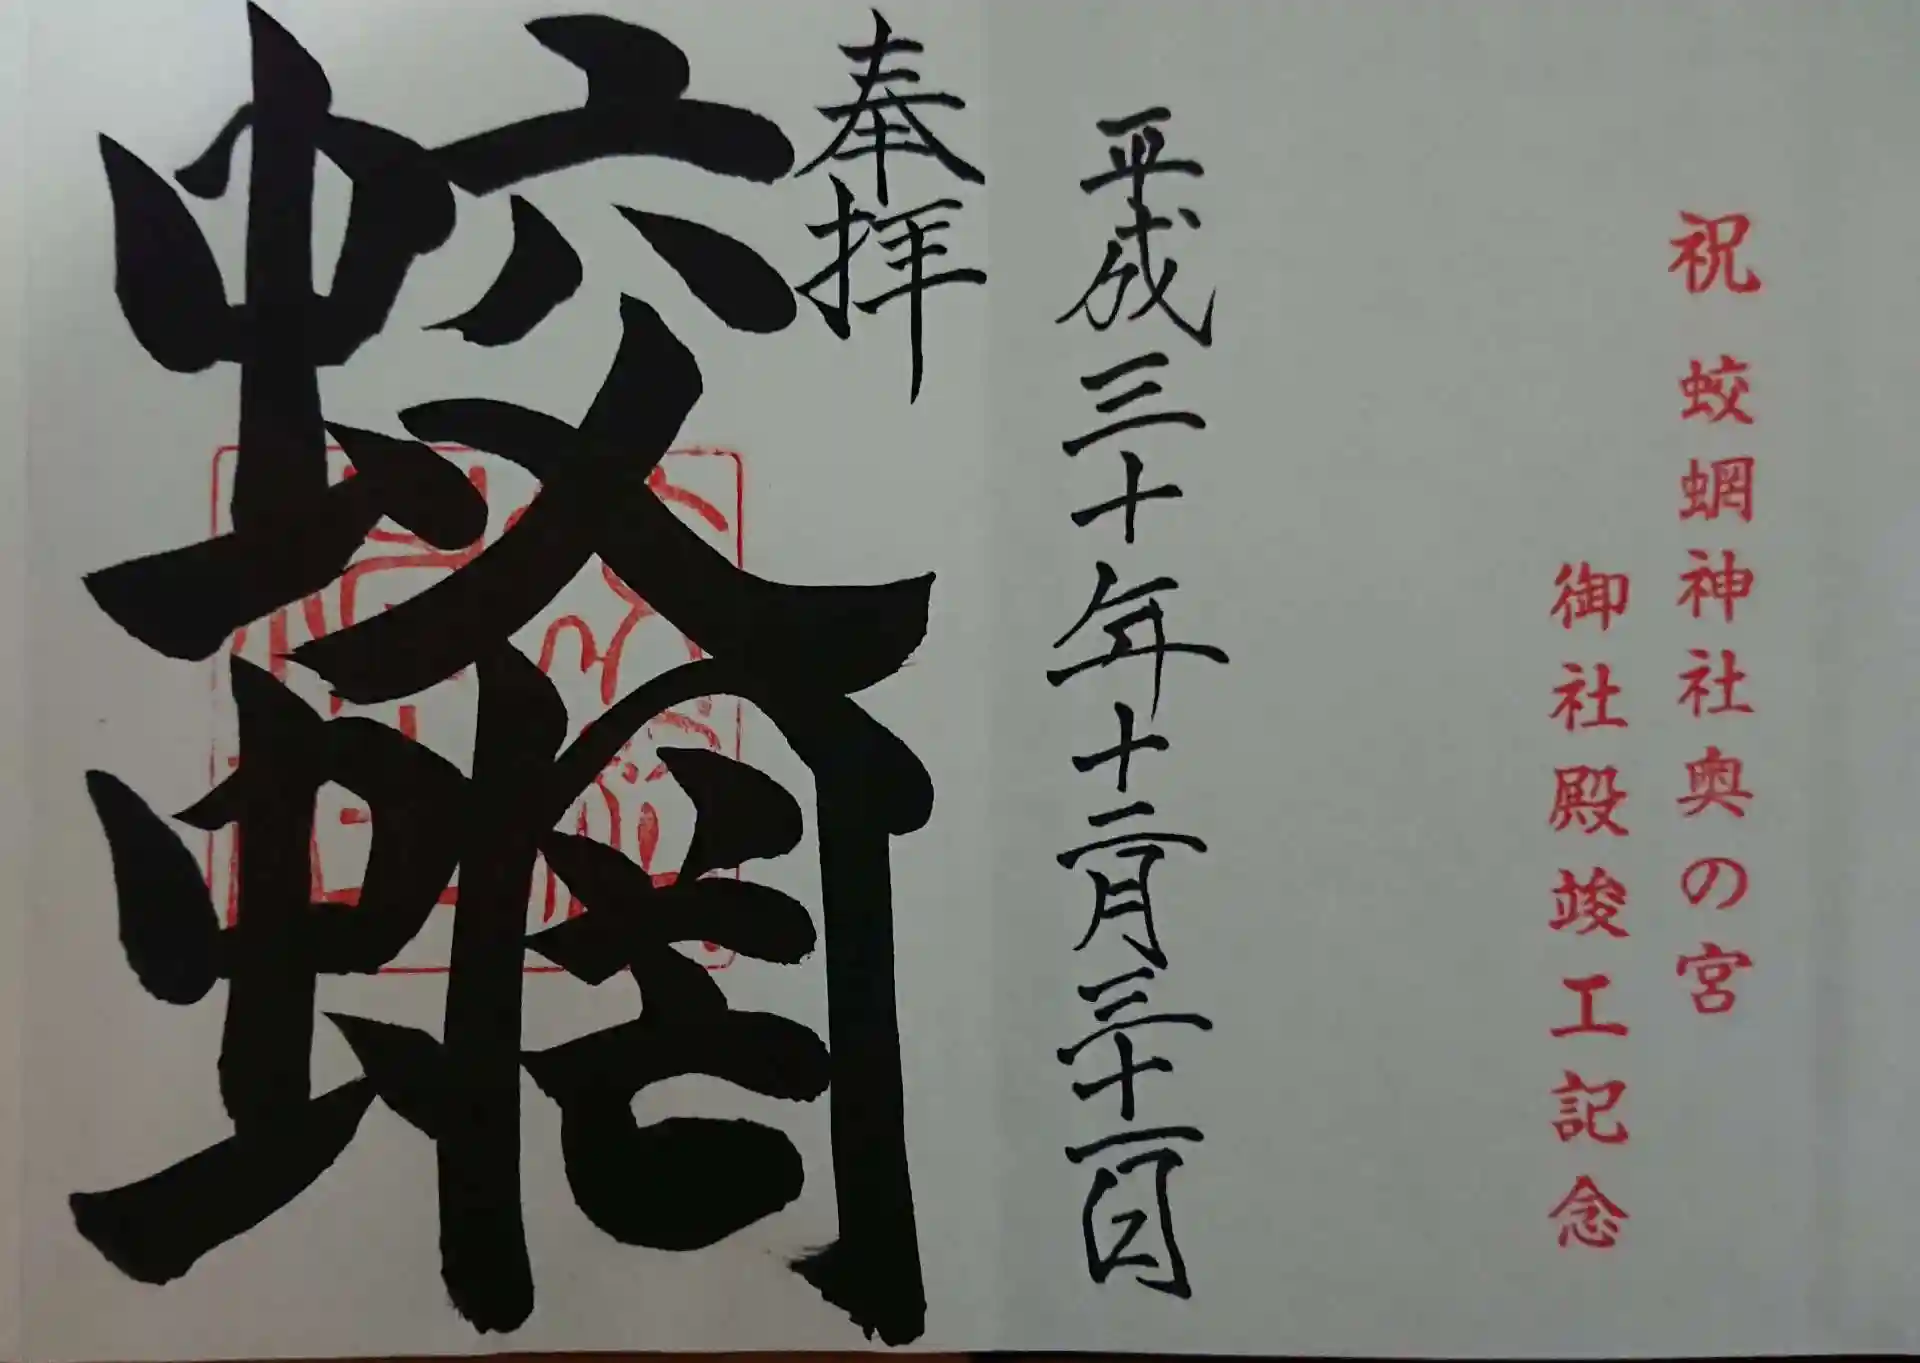 祝 蛟蝄神社奥の宮
御社殿竣工記念
平成三十年十二月三十一日
奉拝
蛟蝄